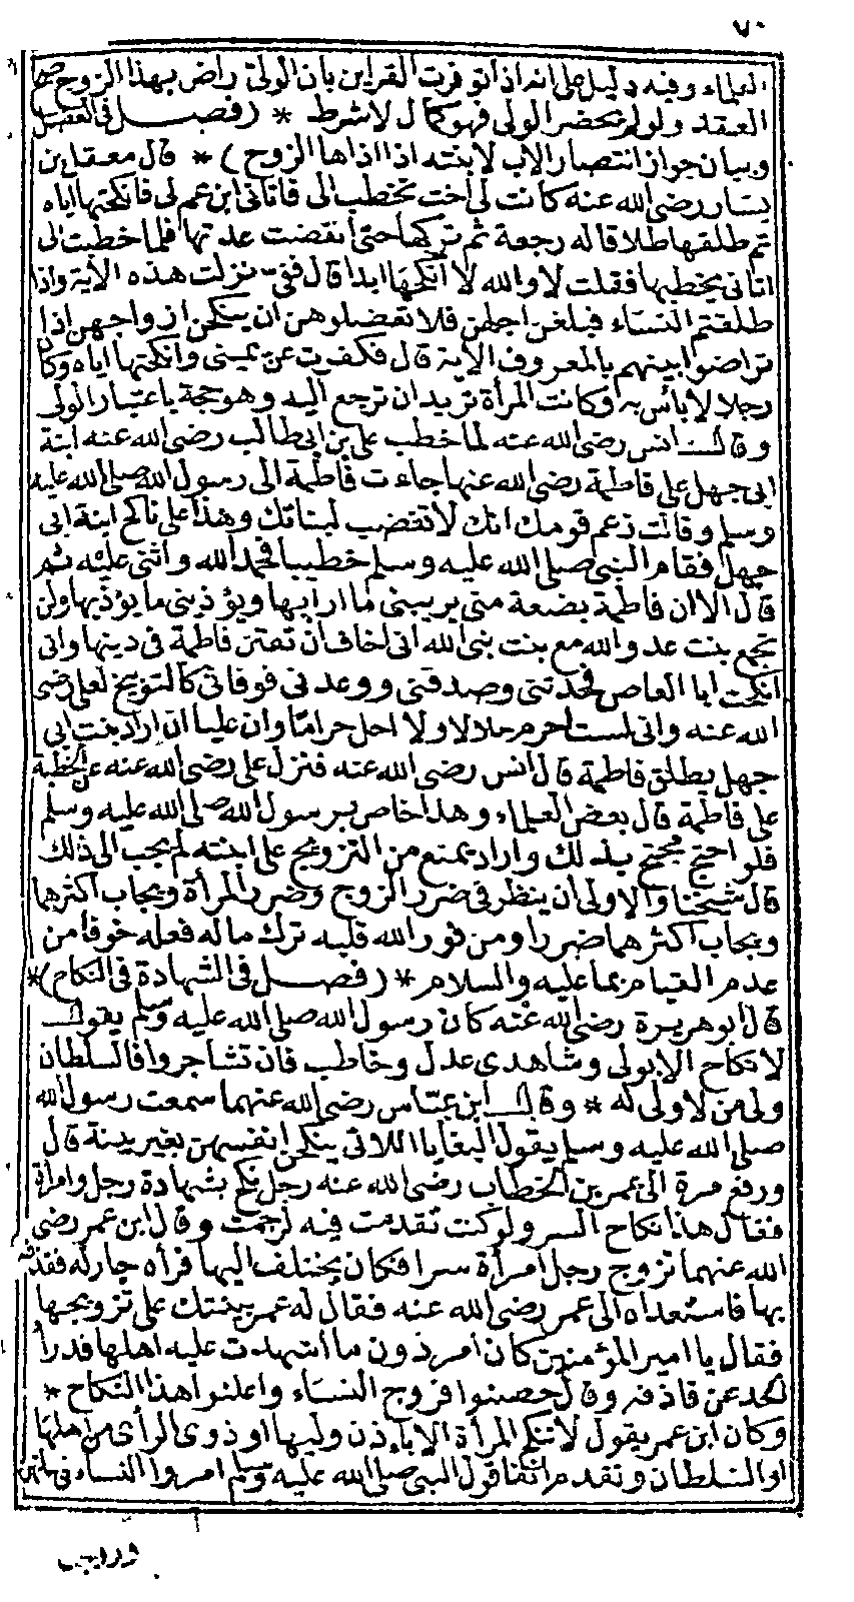 ٧٠
العلماء وفيه دليل على انه اذا توفرت القراين بان الولى راض بهذا الزوج صح
العقد ولو لم يحضر الولى فهو كما لو شرط * (فصل فى العضل
وبيان جواز انتصار الاب لابنته اذا اذاها الزوج) * قال معقل بن
يسار رضى الله عنه كانت لى اخت تخطب الى فاتانى ابن عم لى فانكحتها اياه
ثم طلقها طلاقا له رجعة ثم تركها حتى انقضت عدتها فلما خطبت الى
اتانى يخطبها فقلت لا والله لا انكحها ابدا قال ففى نزلت هذه الاية واذا
طلقتم النساء فبلغن اجلهن فلا تعضلوهن ان ينكحن ازواجهن اذا
تراضوا بينهم بالمعروف الاية قال فكفرت عن يمينى وانكحتها اياه وكان
رجلا لا بأس به وكانت المرأة تريد ان ترجع اليه وهو حجة باعتبار الولى
وقال انس رضى الله عنه لما خطب على بن ابى طالب رضى الله عنه ابنة
ابى جهل على فاطمة رضى الله عنها جاءت فاطمة الى رسول الله صلى الله عليه
وسلم وقالت زعم قومك انك لا تغضب لبناتك وهذا على ناكح ابنة ابى
جهل فقام النبى صلى الله عليه وسلم خطيبا فحمد الله واثنى عليه ثم
قال الا ان فاطمة بضعة منى يريبنى ما ارابها ويؤذينى ما يؤذيها ولن
تجمع بنت عدو الله مع بنت نبى الله انى اخاف ان تفتن فاطمة فى دينها وانى
انكحت ابا العاص فحدثنى وصدقنى ووعدنى فوفانى كالتوبيخ لعلى رضى
الله عنه وانى لست احرم حلالا ولا احل حراما وان عليا ان اراد بنت ابى
جهل يطلق فاطمة قال انس رضى الله عنه فنزل على رضى الله عنه عن الخطبة
على فاطمة قال بعض العلماء وهذا خاص برسول الله صلى الله عليه وسلم
فلو احتج محتج بذلك واراد يمنع من التزويج على ابنته لم يجب الى ذلك
قال شيخنا والاولى ان ينظر فى ضرر الزوج وضرر المرأة ويجاب اكثرهما
ويجاب اكثرهما ضررا ومن نور الله قلبه ترك ما له فعله خوفا من
عدم القيام بما عليه والسلام * (فصل فى الشهادة فى النكاح) *
قال ابو هريرة رضى الله عنه كان رسول الله صلى الله عليه وسلم يقول
لا نكاح الا بولى وشاهدى عدل وخاطب فان تشاجروا فالسلطان
ولى من لا ولى له * وقال ابن عباس رضى الله عنهما سمعت رسول الله
صلى الله عليه وسلم يقول البغايا اللاتى ينكحن انفسهن بغير بينة قال
ورفع مرة الى عمر بن الخطاب رضى الله عنه رجل نكح بشهادة رجل وامرأة
فقال هذا نكاح السر ولو كنت تقدمت فيه لرجمت وقال ابن عمر رضى
الله عنهما تزوج رجل امرأة سرا فكان يختلف اليها فرأه جار له فقذفه
بها فاستعداه الى عمر رضى الله عنه فقال له عمر بينتك على تزويجها
فقال يا امير المؤمنين كان امر دون ما اشهدت عليه اهلها فدرأ
الحد عن قاذفه وقال حصنوا فروج النساء واعلنوا هذا النكاح *
وكان ابن عمر يقول لا تنكح المرأة الا باذن وليها او ذوى الرأى من اهلها
او السلطان وتقدم انفا قول النبى صلى الله عليه وسلم امروا النساء فى بناتهن